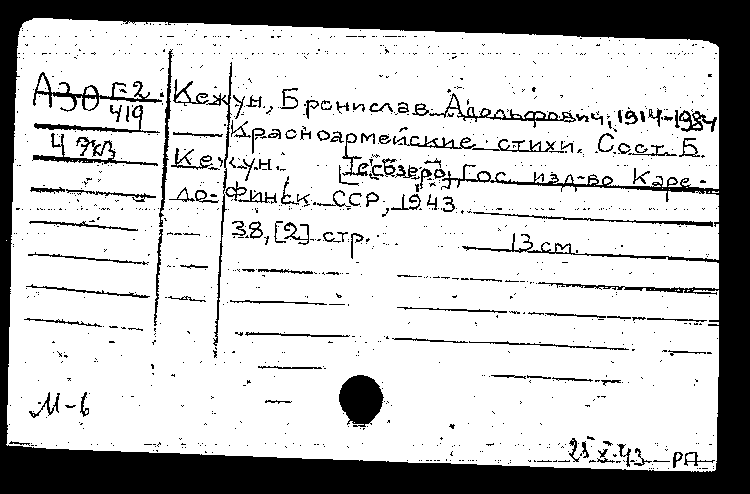 А30 Г-2
419
4 экз
Кежун, Бронислав Адольфович, 1914-1984
Красноармейские стихи. Сост. Б.
Кежун. [Сегозеро], Гос. изд-во Каре-
ло-Финск. ССР, 1943.
38, [2] стр. 13 см.
М-6
25 X-43 РП